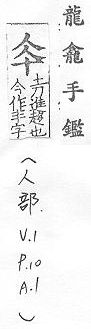 龍龕手鑑
土刀進趍也
今作字
(人部.
V.1
P.10
A.1
)